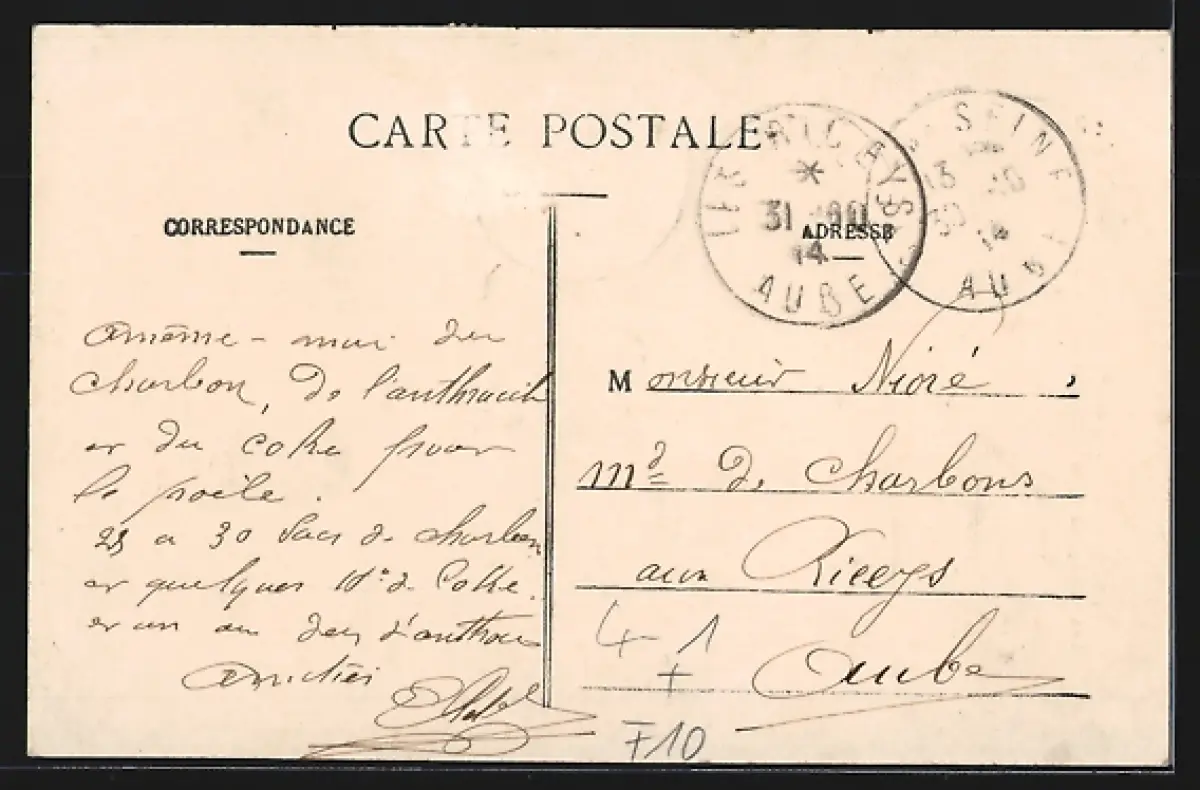 CARTE POSTALE
CORRESPONDANCE
ADRESSE
LES RICEYS
*
31
14
AUBE
SEINE
13
30
14
AUBE
Amène-moi du
charbon, de l'anthracite
et du coke pour
le poële.
25 a 30 sacs de charbon
et quelques de Coke.
et un ou deux d'anthra
Amitiés
Monsieur Nioré,
Md de Charbons
aux Riceys
Aube
4 1
+
F10